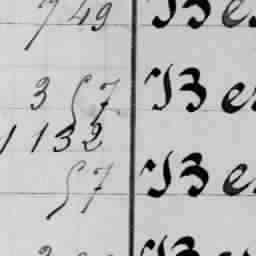 749 Be
357 Be
1132
57 Be